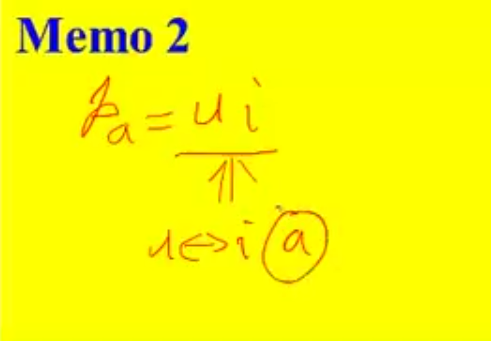 Memo 2
pₐ = u i
⇑
u ⇔ i (a)